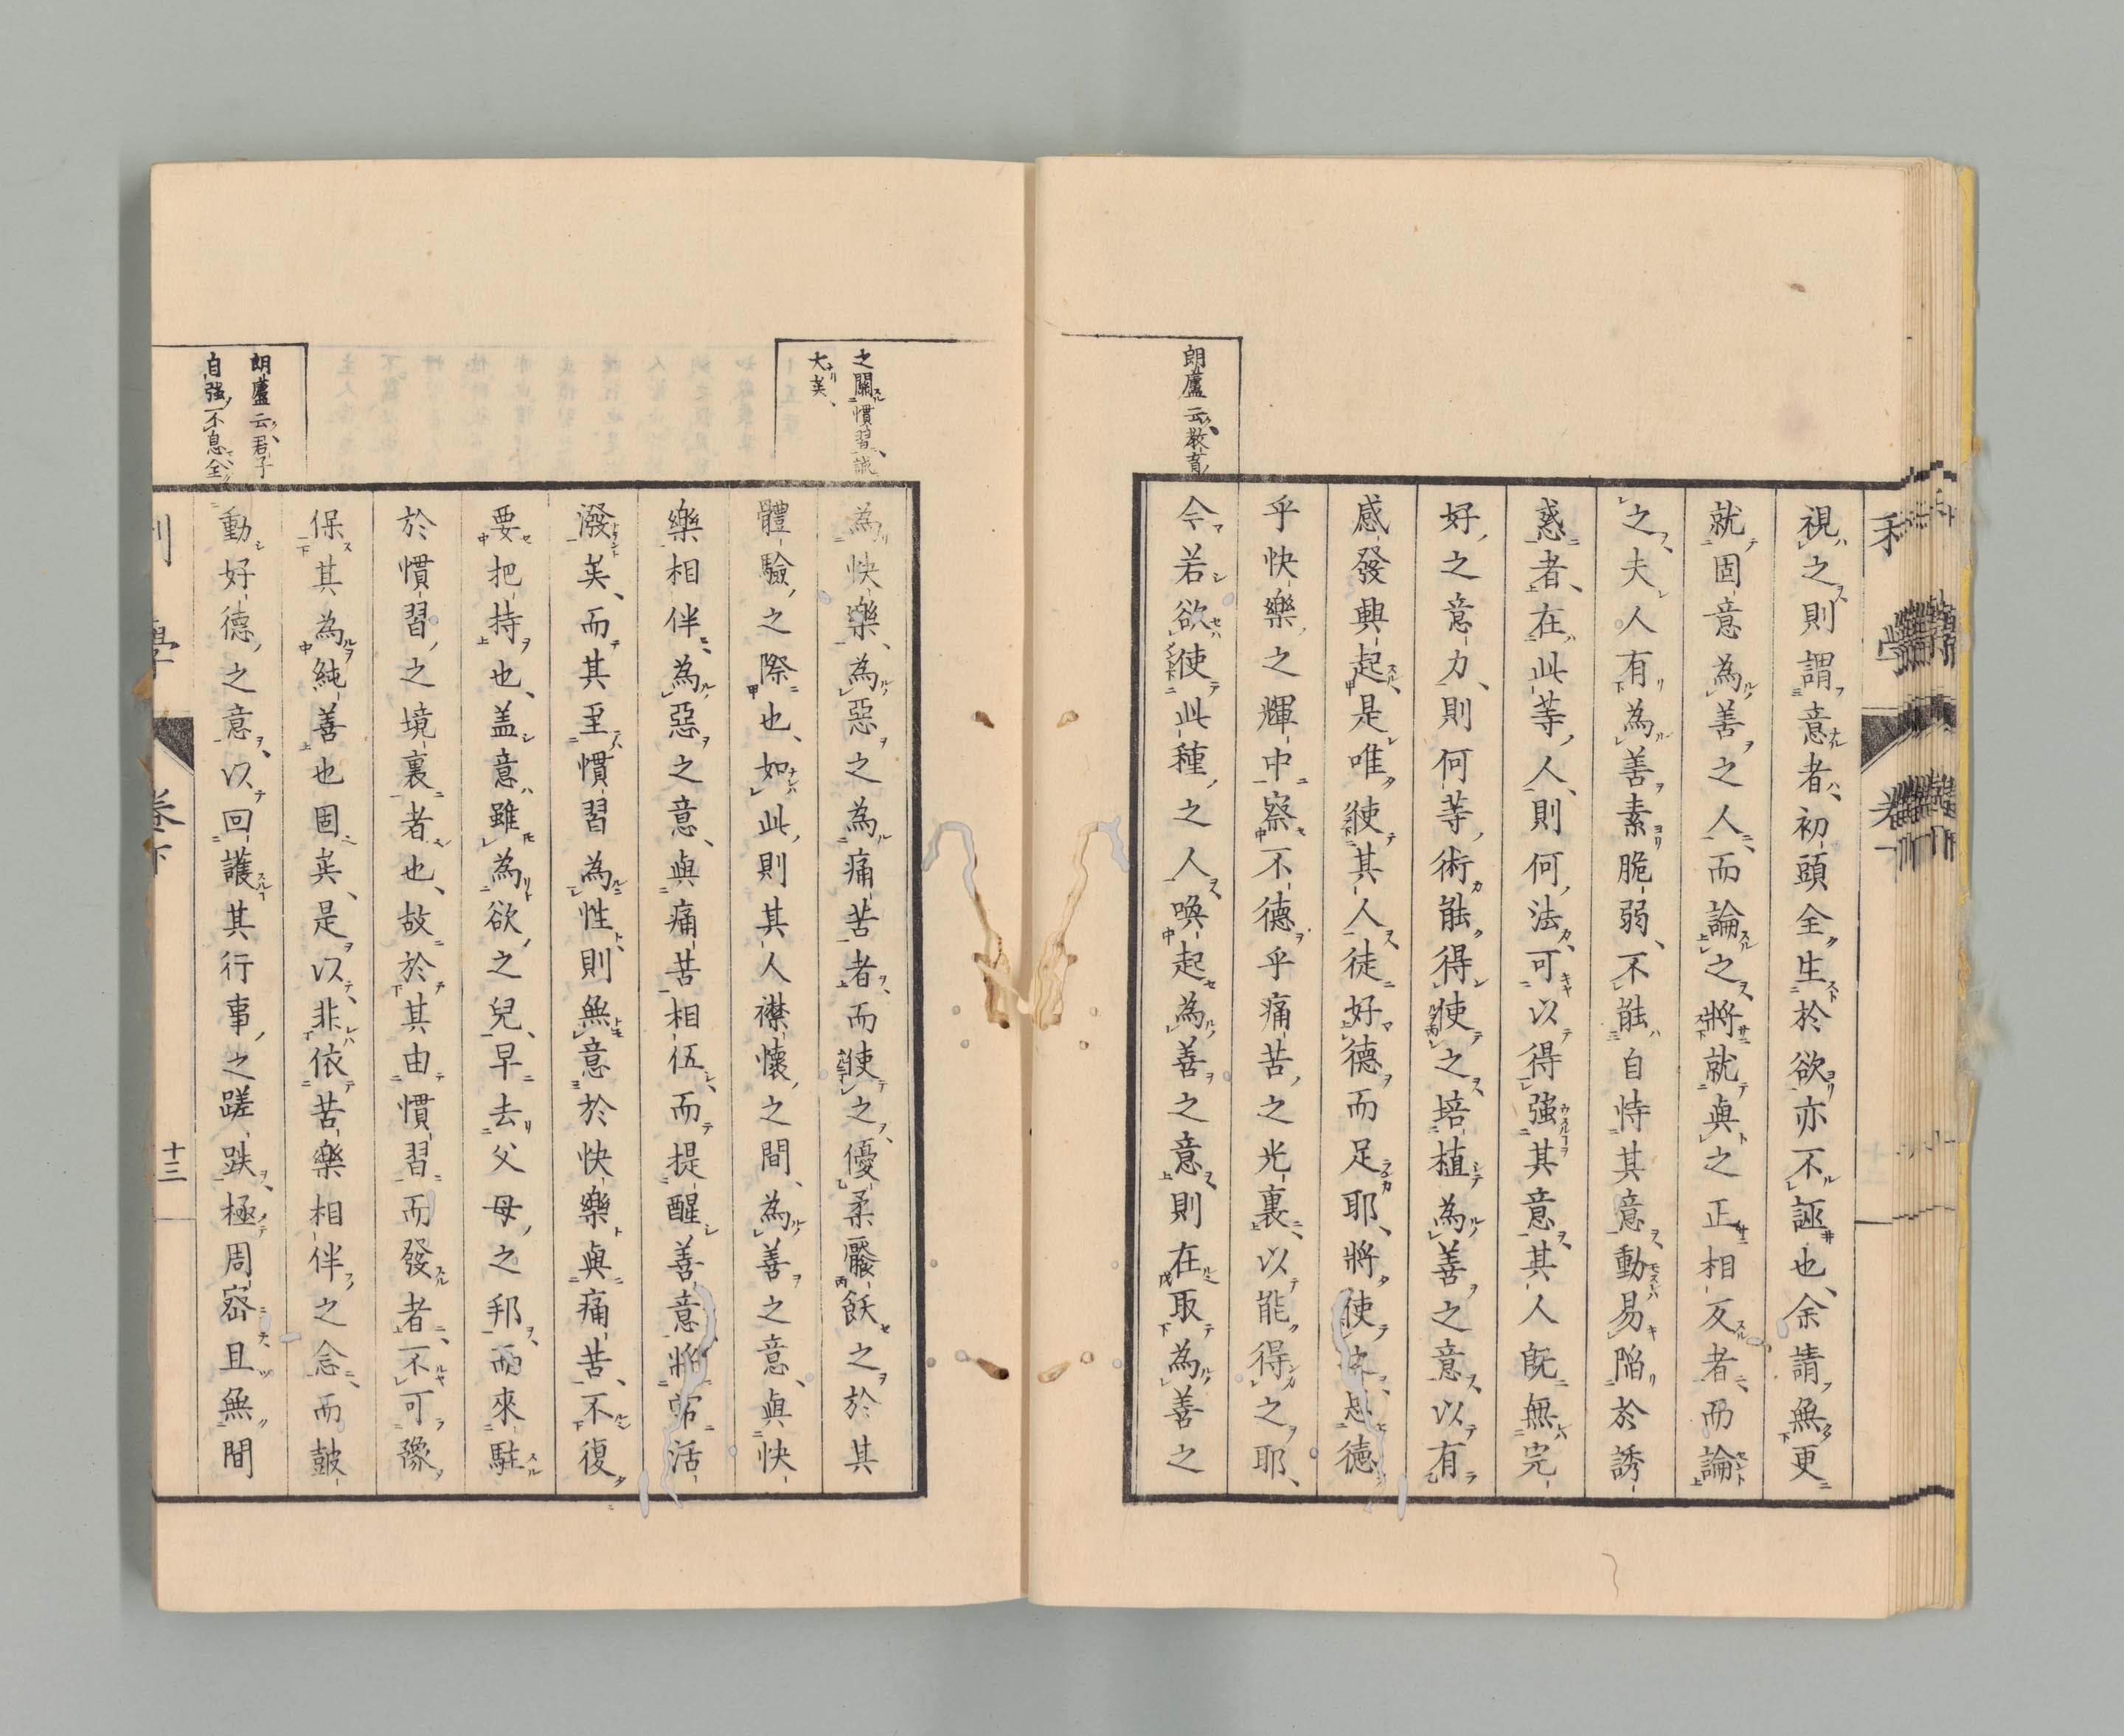 視之則謂意者、初頭全生於欲亦不誣也、余請無更
就固意為善之人、而論之、將就與之正相反者、而論
之、夫人有為善素脆弱、不能自恃其意、動易陷於誘
惑者、在此等人、則何法可以得強其意、其人既無完
好之意力、則何等術能得使之培植為善之意、以有
感發興起、是唯使其人徒好德而足耶、將使之思德
乎快樂之輝中、察不德乎痛苦之光裏、以能得之耶、
今若欲使此種之人喚起為善之意、則在取為善之
朗廬云、教育
之關慣習、誠
大矣、
為快樂、為惡之為痛苦者、而使之優柔饜飫之於其
體驗之際也、如此、則其人襟懷之間、為善之意、與快
樂相伴、為惡之意、與痛苦相伍、而提醒善意、將常活
潑矣、而其至慣習為性、則無意於快樂與痛苦、不復
要把持也、盖意雖為欲之兒、早去父母之邦、而來駐
於慣習之境裏者也、故於其由慣習而發者、不可豫
保其為純善也固矣、是以非依苦樂相伴之念、而鼓
動好德之意、以回護其行事之蹉跌、極周密且無間
朗廬云、君子
自強不息、全
利 學 卷下 十三